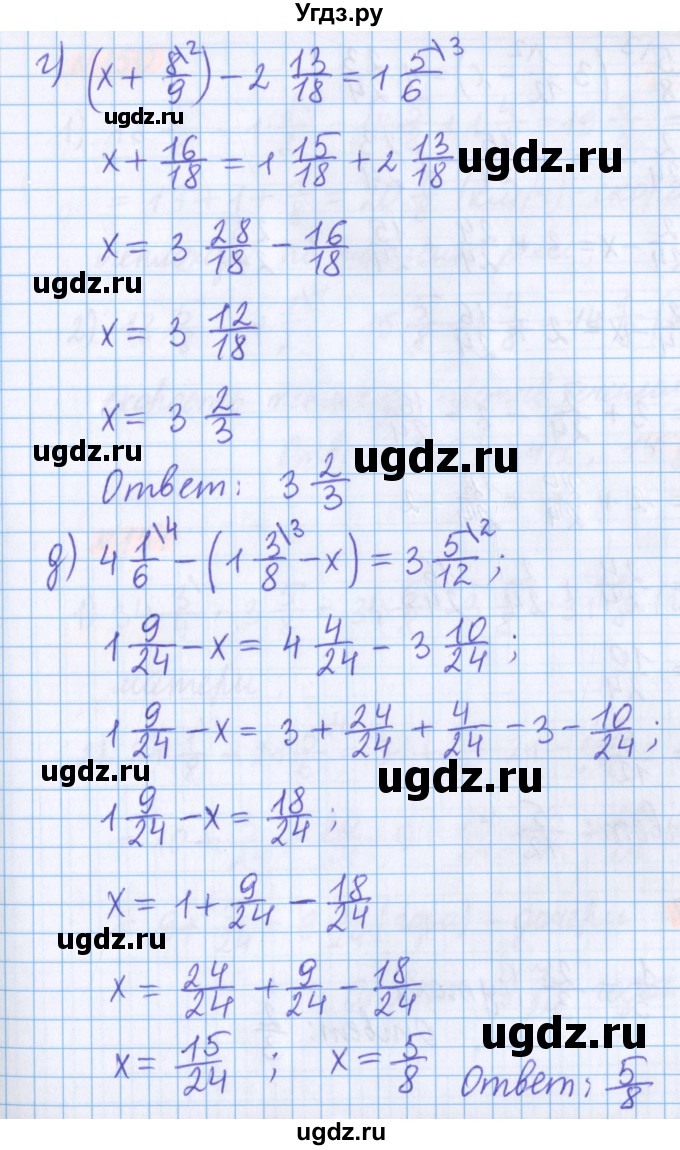 Угдз.ру
г) (x + 8\2/9) - 2 13/18 = 1 5\3/6
ugdz.ru
x + 16/18 = 1 15/18 + 2 13/18
ugdz.ru
x = 3 28/18 - 16/18
ugdz.ru
x = 3 12/18
x = 3 2/3
ugdz.ru
ugdz.ru
Ответ: 3 2/3
д) 4 1\4/6 - (1 3\3/8 - x) = 3 5\2/12;
1 9/24 - x = 4 4/24 - 3 10/24;
1 9/24 - x = 3 + 24/24 + 4/24 - 3 - 10/24;
ugdz.ru
ugdz.ru
1 9/24 - x = 18/24;
x = 1 + 9/24 - 18/24
ugdz.ru
x = 24/24 + 9/24 - 18/24
ugdz.ru
x = 15/24; x = 5/8
Ответ: 5/8
ugdz.ru